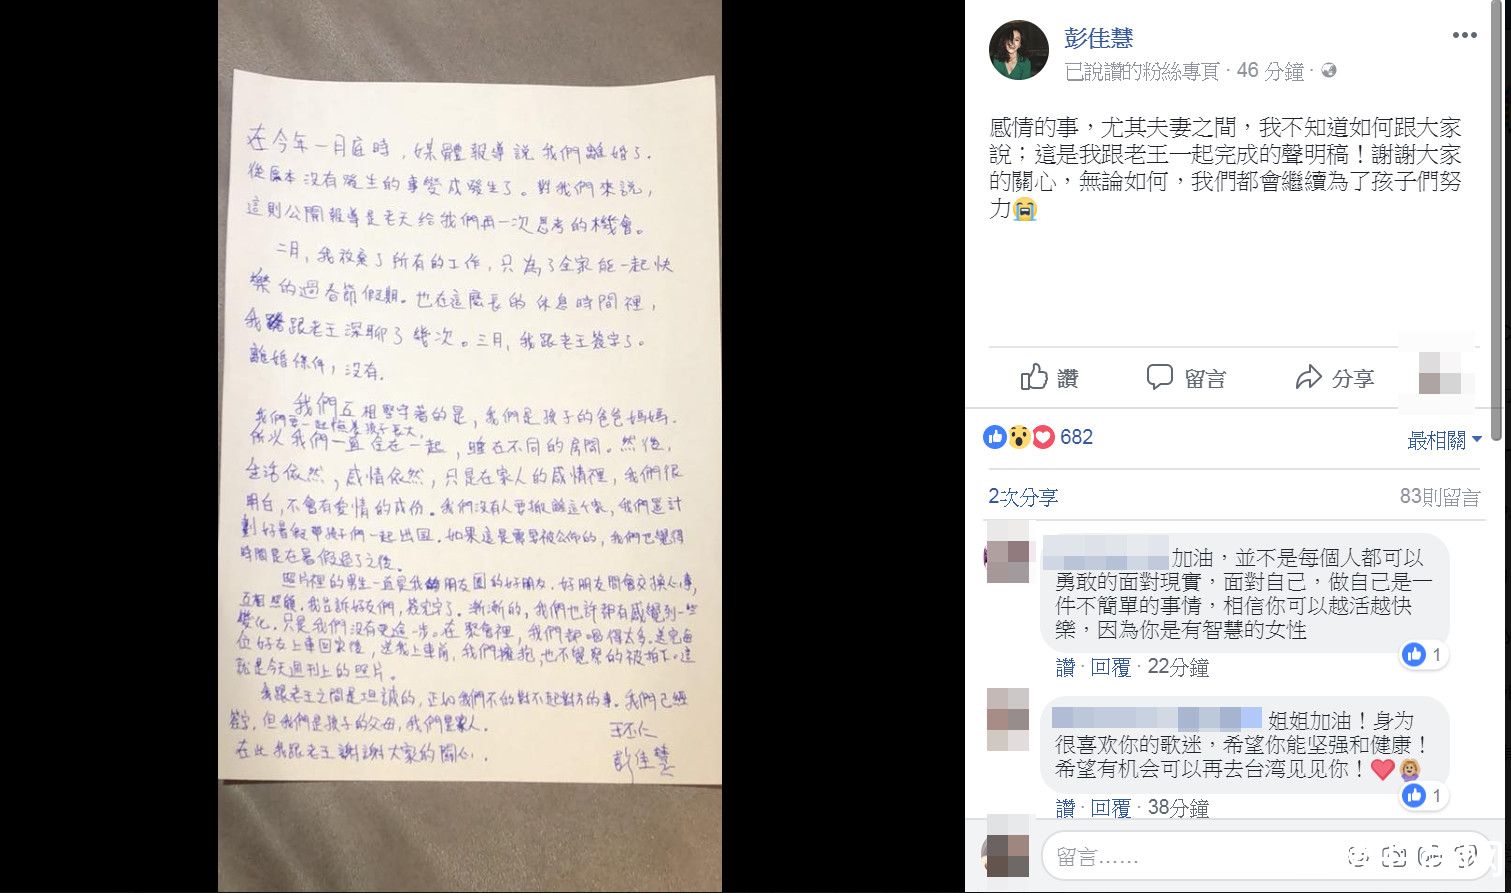 在今年一月底時，媒體報導說我們離婚了.
從原本沒有發生的事變成發生了。對我們來說，
這則公開報導是老天給我們再一次思考的機會。
二月，我放棄了所有的工作，只為了全家能一起快
樂的過春節假期。也在這麼長的休息時間裡，
我跟老王深聊了幾次。三月，我跟老王簽字了。
離婚條件，沒有.
我們互相堅守著的是，我們是孩子的爸爸媽媽.
我們要一起撫養孩子長大,
所以我們一直住在一起，睡在不同的房間。然後，
生活依然，感情依然，只是在家人的感情裡，我們很
明白，不會有愛情的成份。我們沒有人要搬離這个家，我們還計
劃好暑假帶孩子們一起出国.如果這是需要被公佈的，我們也覺得
時間是在暑假過了之後。
照片裡的男生一直是我朋友圈的好朋友.好朋友間會交換心事，
互相照顧.我告訴好友們，簽完字了.漸漸的，我們也許都有感覺到一些
變化.只是我們沒有更進一步。在聚會裡，我們都喝得太多.送完每
位好友上車回家後，送我上車前，我們擁抱，也不覺察的被拍下。這
就是今天週刊上的照片。
我跟老王之間是坦誠的，正如我們不做對不起對方的事。我們已經
簽字，但我們是孩子的父母，我們是家人.
王丕仁
在此我跟老王謝謝大家的關心.
彭佳慧
彭佳慧
已說讚的粉絲專頁 · 46 分鐘 ·
感情的事，尤其夫妻之間，我不知道如何跟大家
說；這是我跟老王一起完成的聲明稿！謝謝大家
的關心，無論如何，我們都會繼續為了孩子們努
力😭
讚 留言 分享
682
最相關
2次分享 83則留言
加油，並不是每個人都可以
勇敢的面對現實，面對自己，做自己是一
件不簡單的事情，相信你可以越活越快
樂，因為你是有智慧的女性
1
讚 · 回覆 · 22分鐘
姐姐加油！身为
很喜欢你的歌迷，希望你能坚强和健康！
希望有机会可以再去台湾见见你！❤️🙋🏼
1
讚 · 回覆 · 38分鐘
留言……